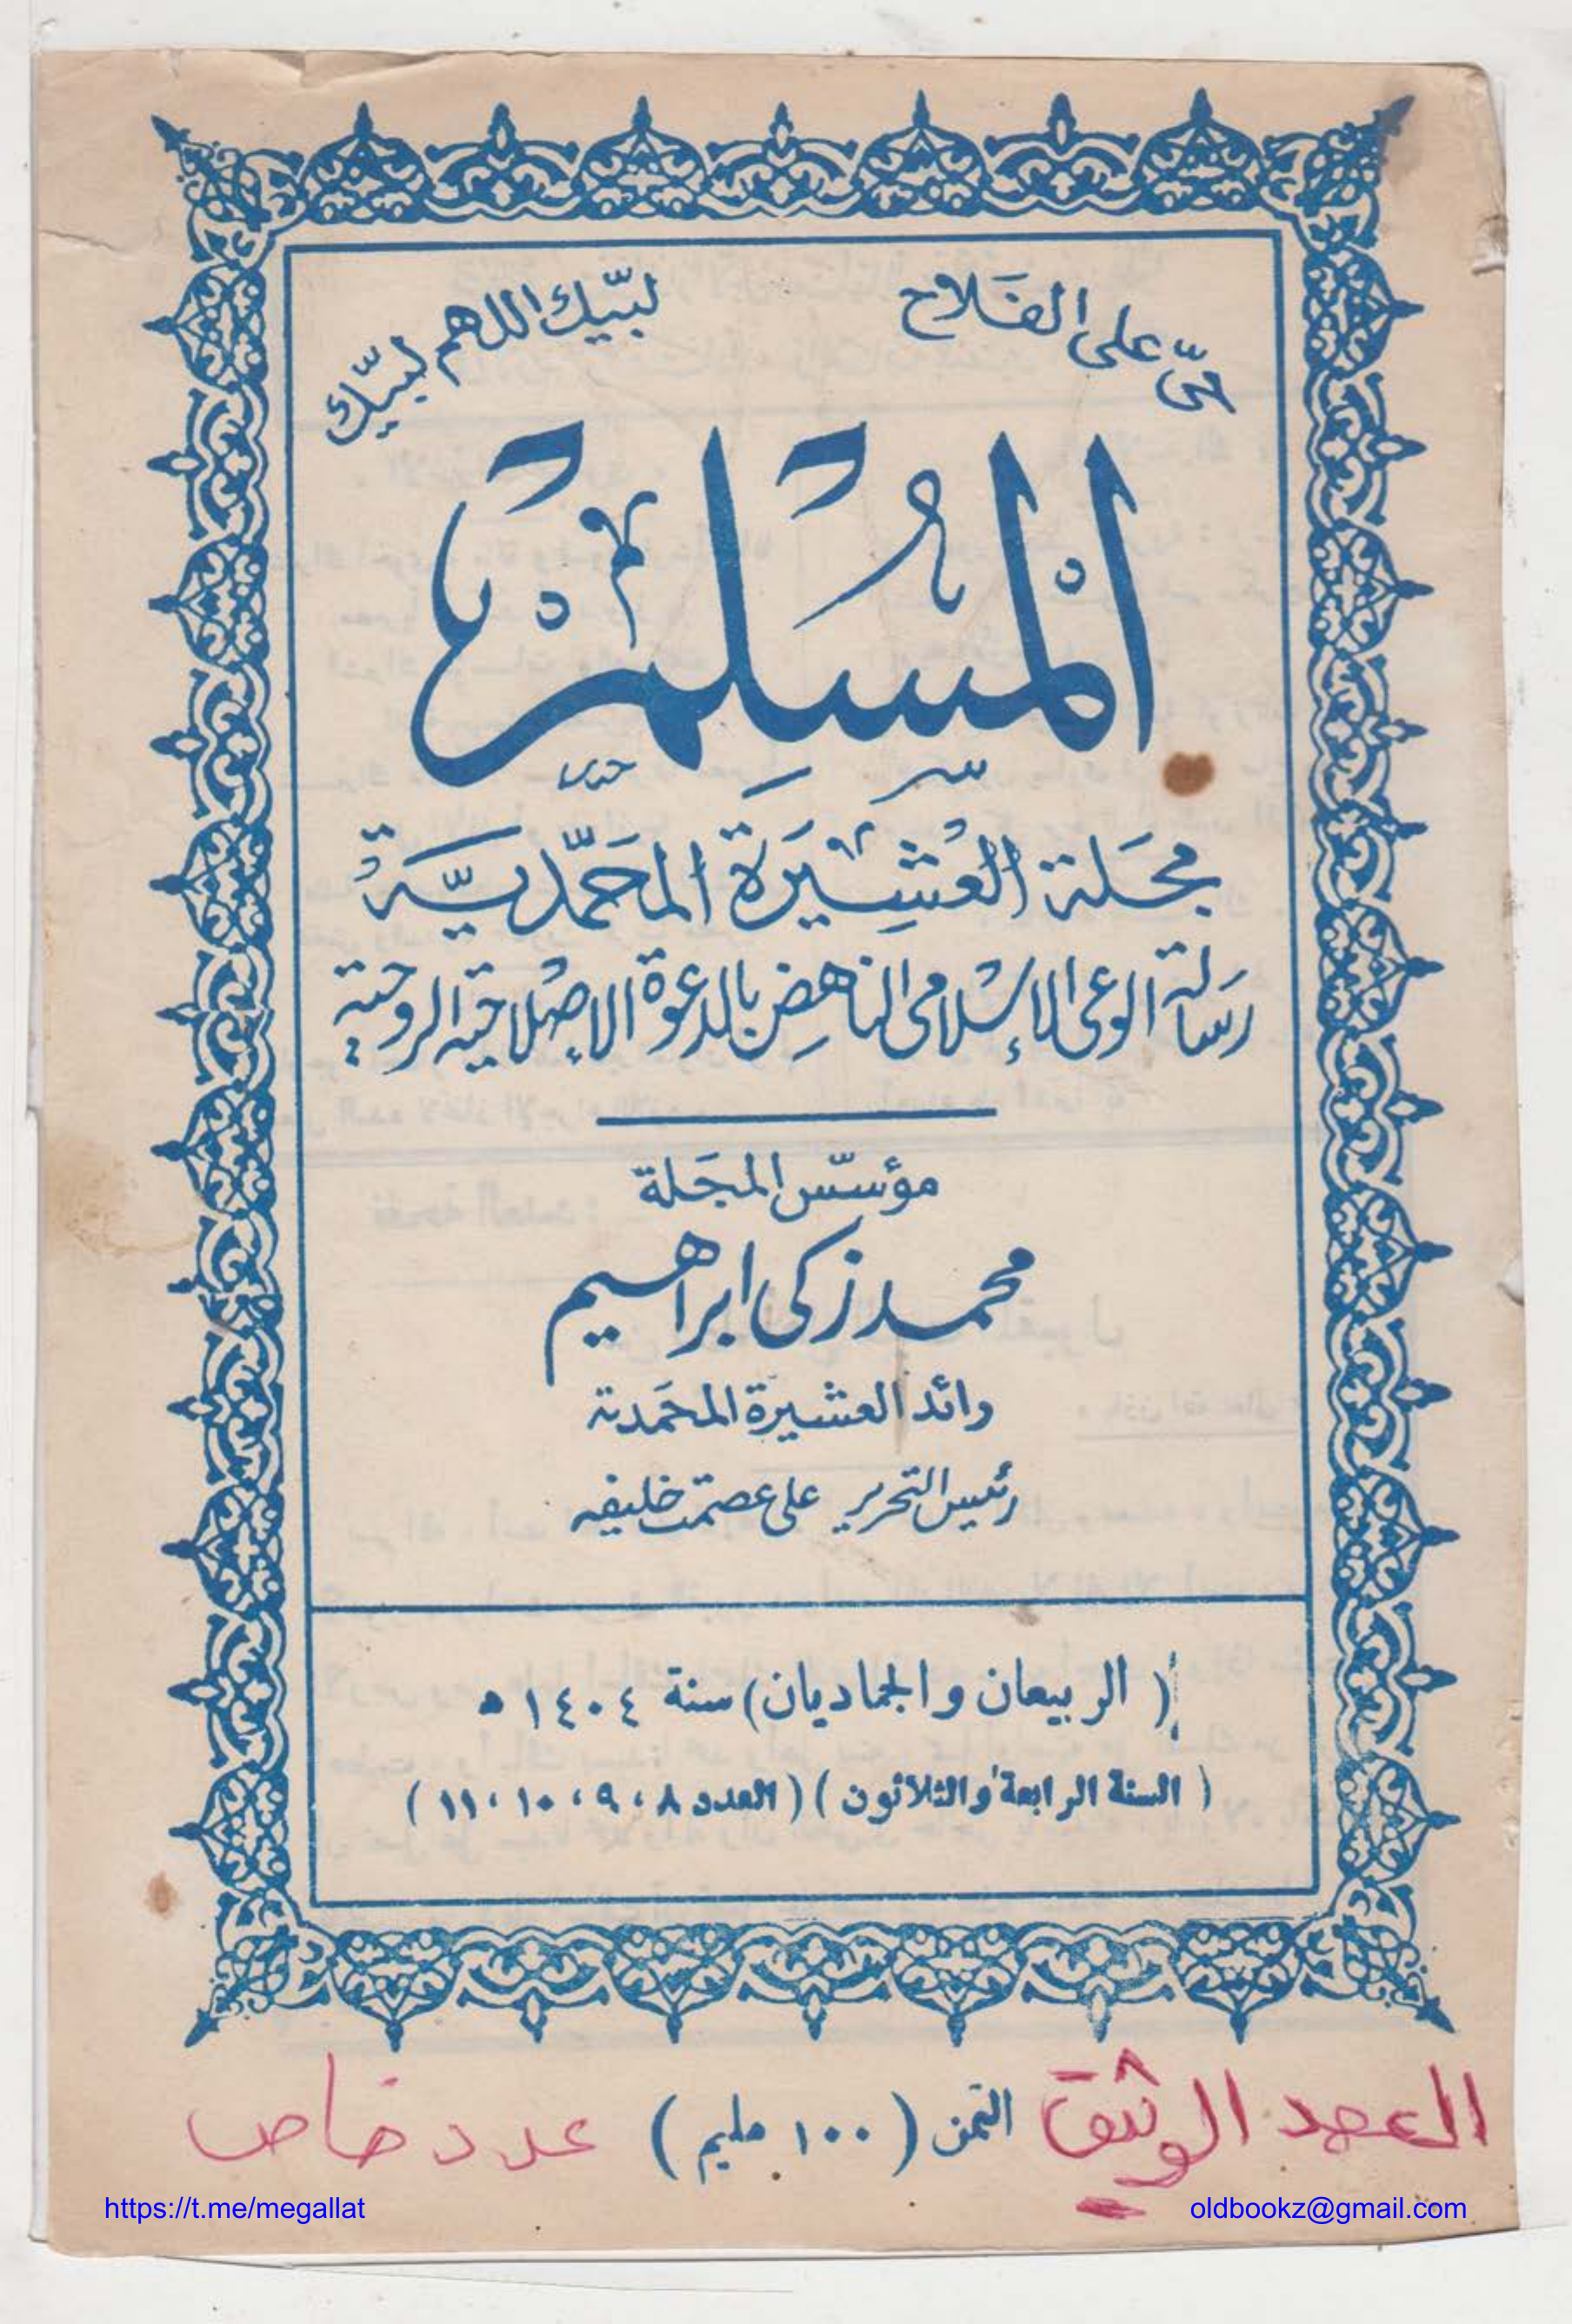 حيّ على الفَلاح لبّيك اللهم لبيّك
المُسْلِمْ
مجَلة العَشِيرَة المحَمّديَّة
رسَالة الوعى الإسْلامى الناهض بالدعوة الإصْلاحية الروحية
مؤسّس المجَلة
محمد زكى ابراهيم
رائد العشيرة المحَمدية
رئيس التحرير على عصمت خليفه
( الربيعان والجماديان ) سنة ١٤٠٤ ه
( السنة الرابعة والثلاثون ) ( العدد ٨ ، ٩ ، ١٠ ، ١١ )
العهد الوثيق الثمن ( ١٠٠ مليم ) عدد خاص
https://t.me/megallat oldbookz@gmail.com